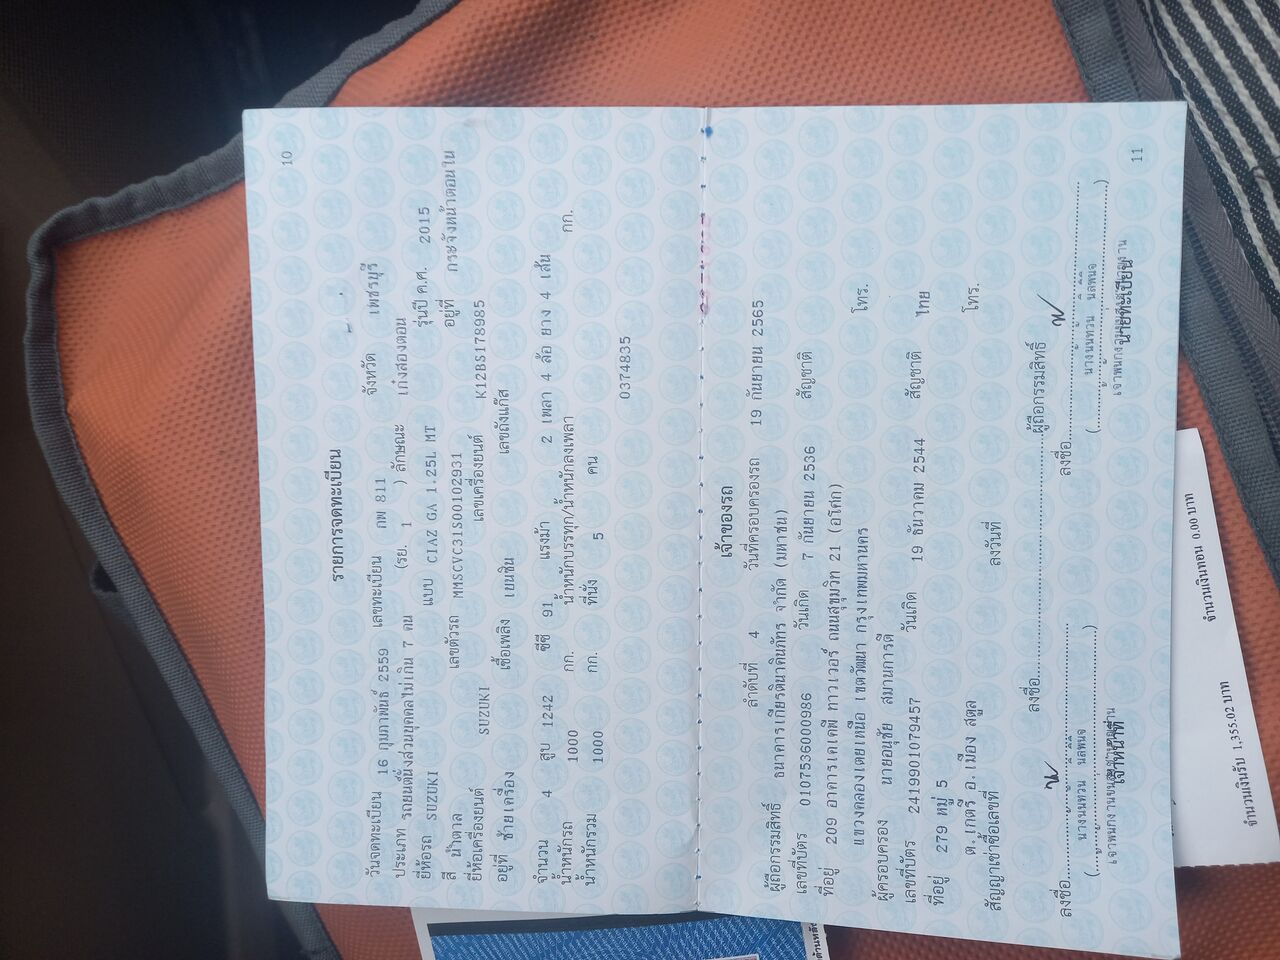 10
รายการจดทะเบียน
วันจดทะเบียน 16 กุมภาพันธ์ 2559 เลขทะเบียน กพ 811 จังหวัด เพชรบุรี
ประเภท รถยนต์นั่งส่วนบุคคลไม่เกิน 7 คน (รย. 1 ) ลักษณะ เก๋งสองตอน
ยี่ห้อรถ SUZUKI แบบ CIAZ GA 1.25L MT รุ่นปี ค.ศ. 2015
สี น้ำตาล เลขตัวรถ MMSCVC31S00102931 อยู่ที่ กระจังหน้าตอนใน
ยี่ห้อเครื่องยนต์ SUZUKI เลขเครื่องยนต์ K12BS178985
อยู่ที่ ซ้ายเครื่อง เชื้อเพลิง เบนซิน เลขถังแก๊ส
จำนวน 4 สูบ 1242 ซีซี 91 แรงม้า 2 เพลา 4 ล้อ ยาง 4 เส้น
น้ำหนักรถ 1000 กก. น้ำหนักบรรทุก/น้ำหนักลงเพลา กก.
น้ำหนักรวม 1000 กก. ที่นั่ง 5 คน
0374835
เจ้าของรถ
ลำดับที่ 4 วันที่ครอบครองรถ 19 กันยายน 2565
ผู้ถือกรรมสิทธิ์ ธนาคารเกียรตินาคินภัทร จำกัด (มหาชน)
เลขที่บัตร 0107536000986 วันเกิด 7 กันยายน 2536 สัญชาติ
ที่อยู่ 209 อาคารเคเคพี ทาวเวอร์ ถนนสุขุมวิท 21 (อโศก)
แขวงคลองเตยเหนือ เขตวัฒนา กรุงเทพมหานคร โทร.
ผู้ครอบครอง นายอนุชัย สมานการดี
เลขที่บัตร 2419901079457 วันเกิด 19 ธันวาคม 2544 สัญชาติ ไทย
ที่อยู่ 279 หมู่ 5
ต.เกตรี อ.เมือง สตูล โทร.
สัญญาเช่าซื้อเลขที่ ลงวันที่
ลงชื่อ ผู้ถือกรรมสิทธิ์
ลงชื่อ ลงชื่อ
( ) ( )
เจ้าหน้าที่ นายทะเบียน
11
จำนวนเงินรับ 1,355.02 บาท จำนวนเงินทอน 0.00 บาท